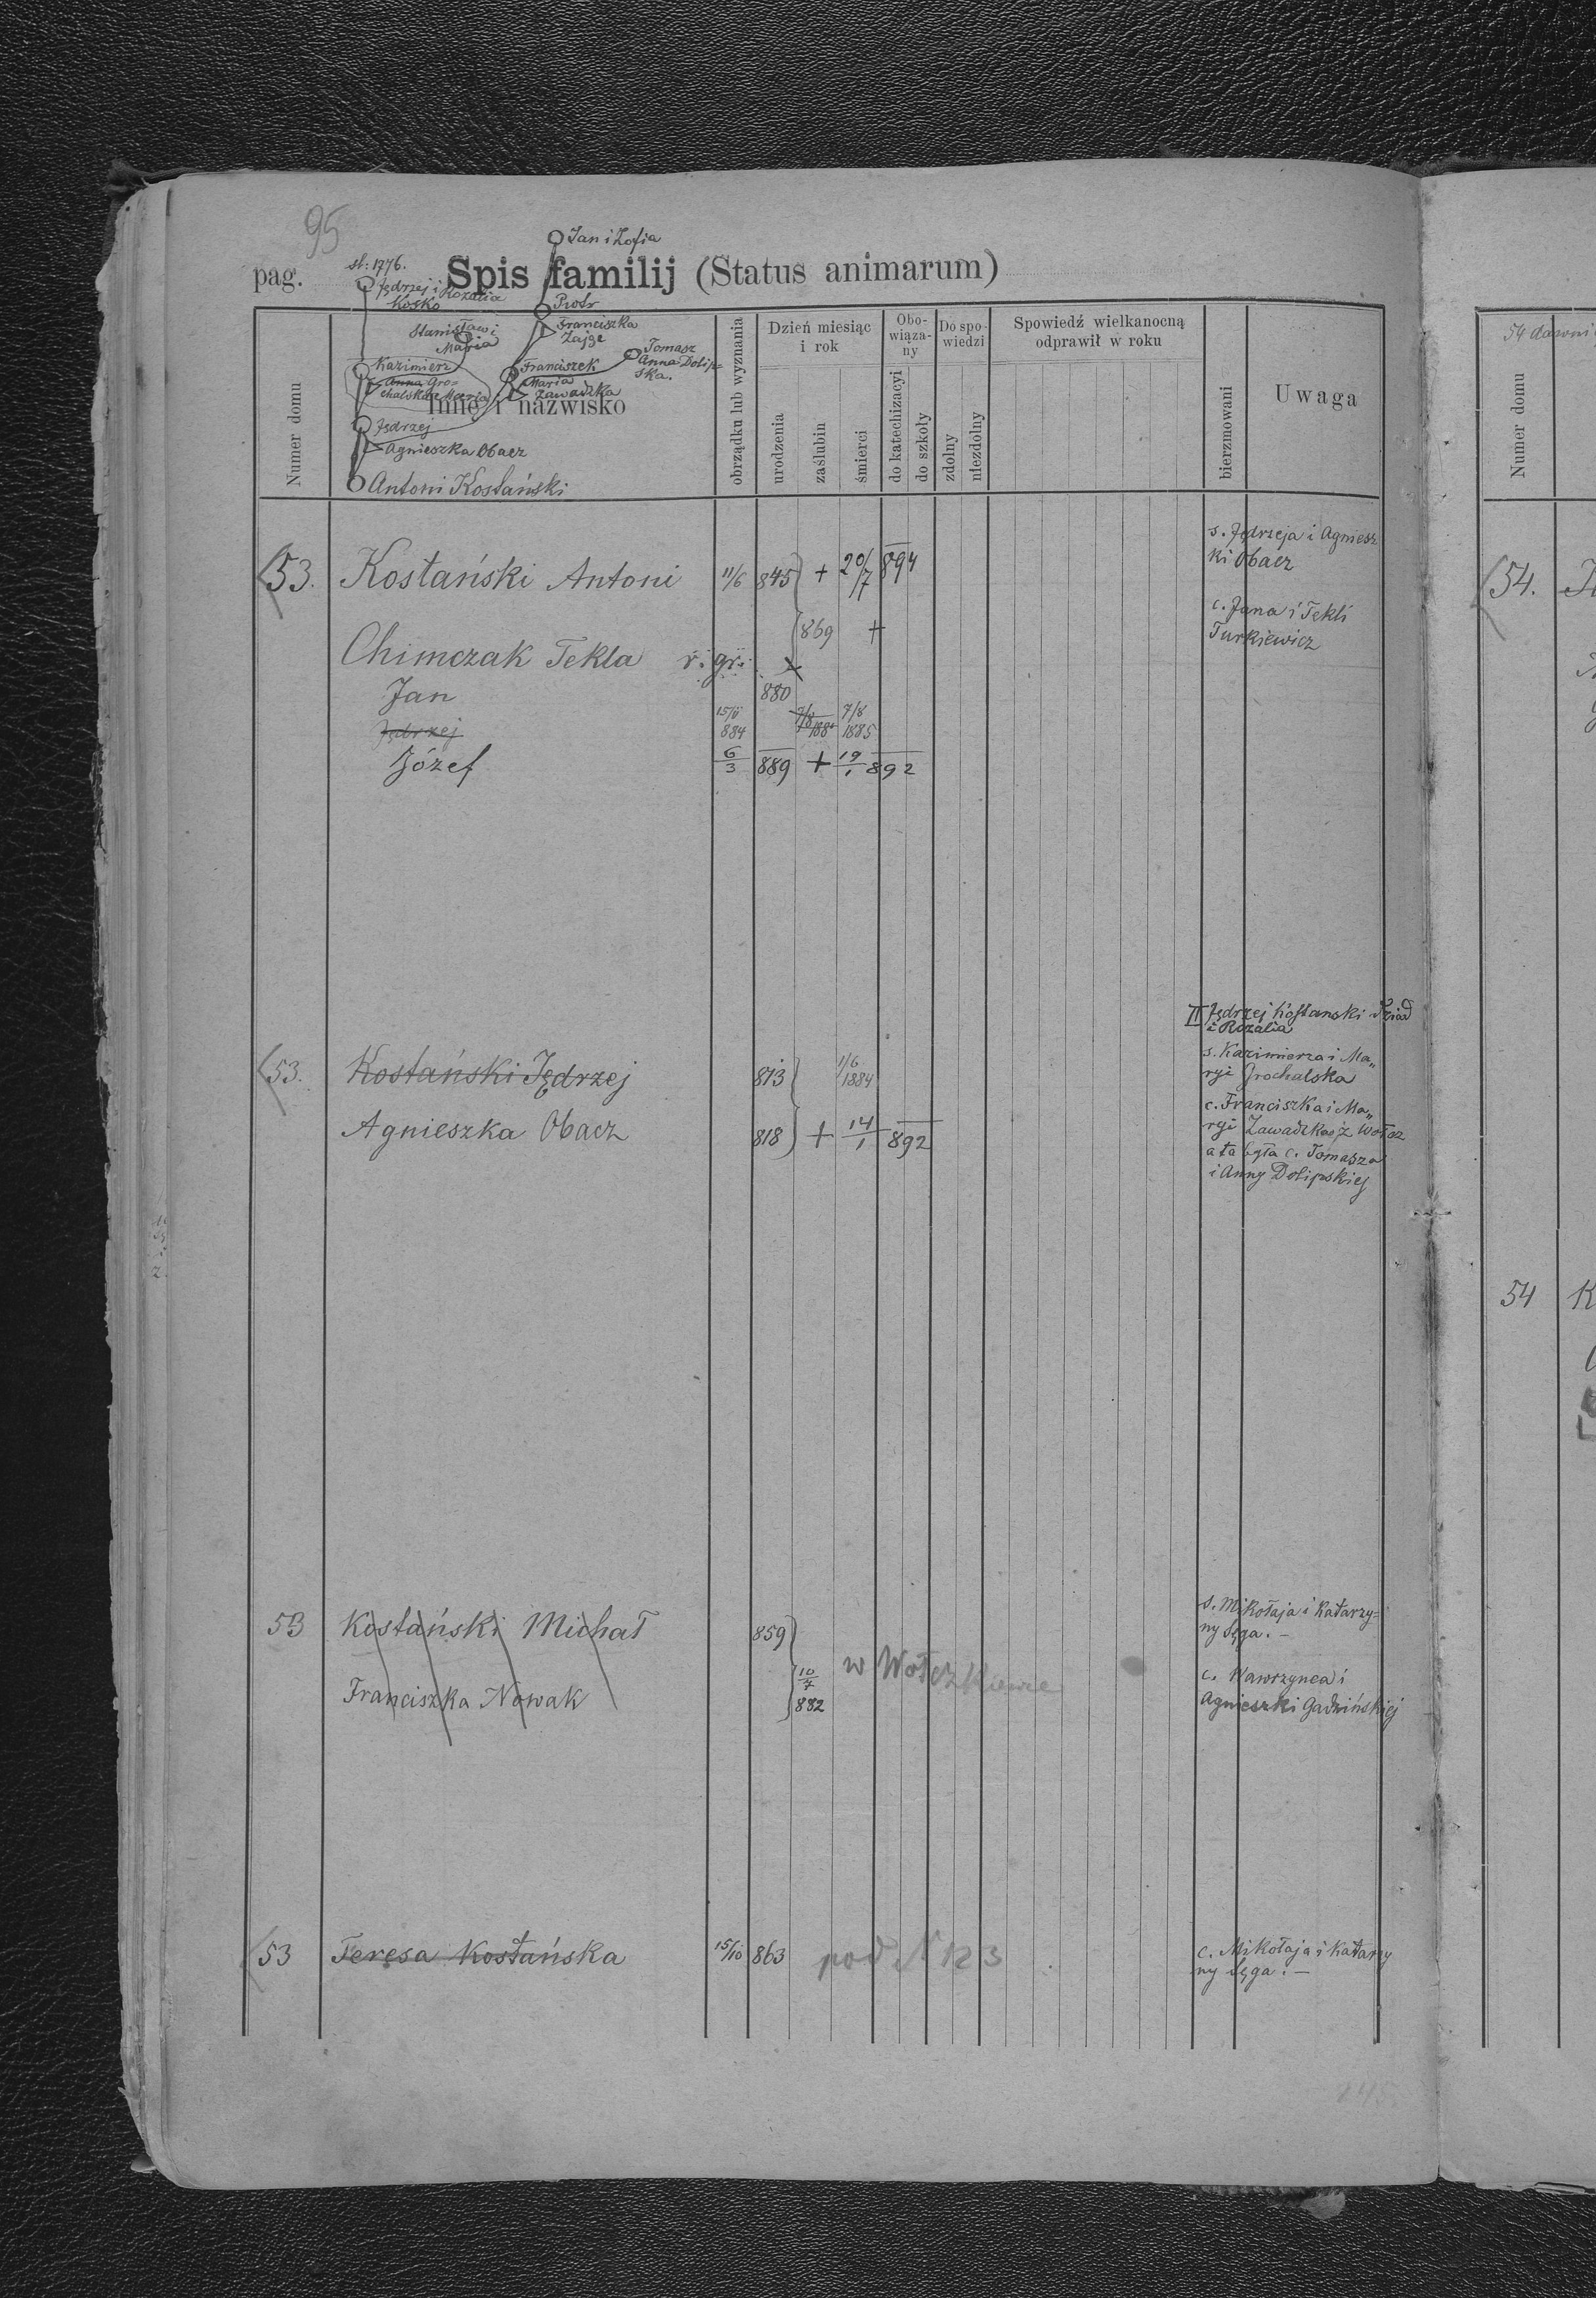 95
pag. Spis familij (Status animarum)
Jan i Zofia
sl: 1776.
Jędrzej i Rozalia
Kosko
Piotr
Franciszka
Zajge
Stanisław i
Maria
Tomasz
Anna Dolip-
ska.
Kazimierz
Anna Gro-
chalska Maria
Franciszek
Maria
Zawadzka
Jędrzej
Agnieszka Obacz
Antoni Kostański
Numer domu
Imię i nazwisko
obrządku lub wyznania
Dzień miesiąc
i rok
urodzenia
zaślubin
śmierci
Obo-
wiąza-
ny
do katechizacyi
do szkoły
Do spo-
wiedzi
zdolny
niezdolny
Spowiedź wielkanocną
odprawił w roku
bierzmowani
Uwaga
53. Kostański Antoni 11/6 845 + 20/7 894
s. Jędrzeja i Agniesz
ki Obacz
869 +
c. Jana i Tekli
Turkiewicz
Chimczak Tekla r. gr.
Jan 880
Jędrzej 884 7/8 188 7/8 1885
Józef 6/3 889 + 19/1 892
II Jędrzej Kostanski dziad
i Rozalia
53. Kostański Jędrzej 813 1/6 1884
s. Kazimierza i Ma„
ryi Grochalska
Agnieszka Obacz 818 + 14/1 892
c. Franciszka i Ma„
ryi Zawadzka z Wołcz
a ta była c. Tomasza
i Anny Dolipskiej
53 Kostański Michał 859
s. Mikołaja i Katarzy=
ny Sęga. —
Franciszka Nowak 10/7 882 w Wołczkowce
c. Wawrzynca i
Agnieszki Gadzińskiej
53 Teresa Kostańska 15/10 863 pod N 123
c. Mikołaja i Katarzy
ny Sęga. —
54 dawni
Numer domu
54.
54 K